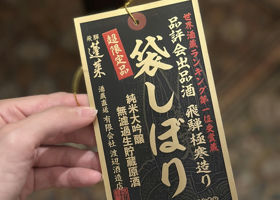 世界酒蔵ランキング第一位受賞蔵
品評会出品酒
飛騨極寒造り
袋しぼり
超限定品
純米大吟醸
無濾過生貯蔵原酒
飛騨
蓬莱
酒蔵直送
有限会社 渡辺酒造店